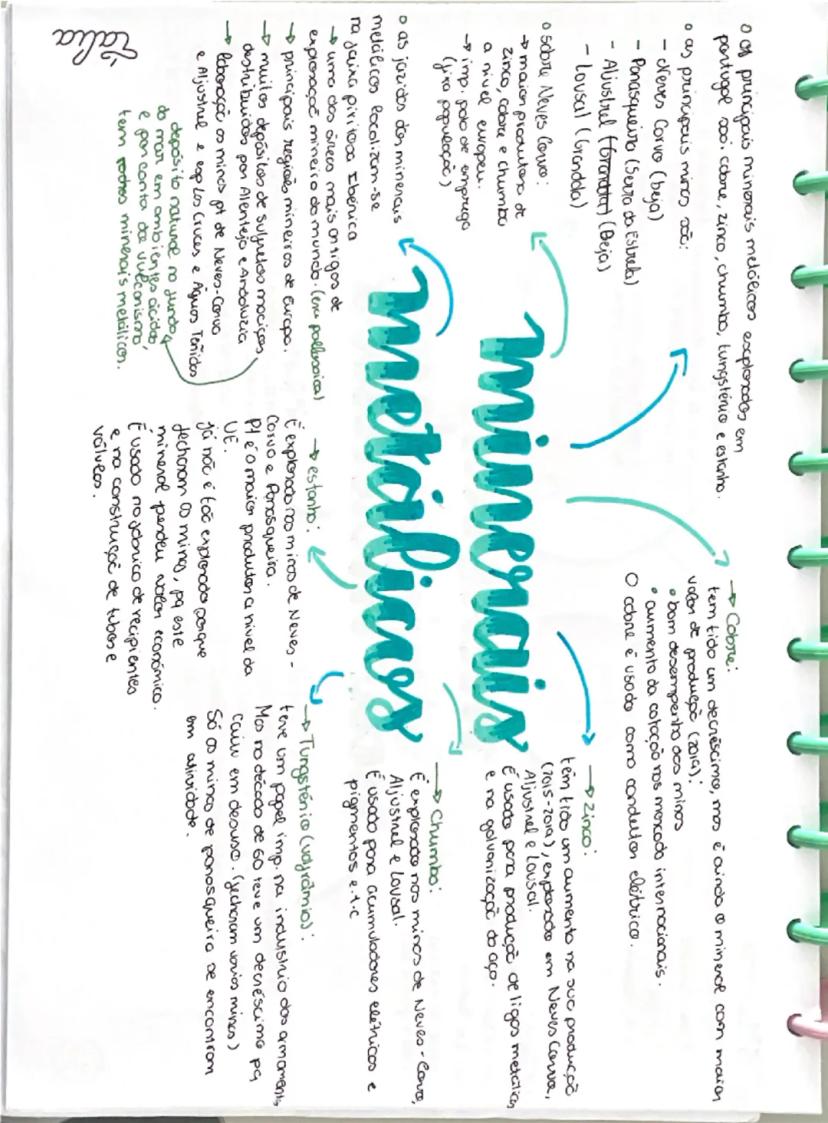 minerais
metálicos
o os principais minerais metálicos explorados em
portugal são: cobre, zinco, chumbo, tungsténio e estanho.
o as principais minas são:
- Neves Corvo (beja)
- Panasqueira (Serra da Estrela)
- Aljustrel (Beja)
- Lousal (Grandola)
o sobre Neves Corvo:
→ maior produtora de
zinco, cobre e chumbo
a nível europeu.
→ imp. polo de emprego
(fixa população)
o as jazidas dos minerais
metálicos localizam-se
na faixa piritosa Ibérica
→ uma das áreas mais antigas de
exploração mineira do mundo. (era paleozoica)
→ principais regiões mineiras da europa.
→ muitos depósitos de sulfuretos maciços
destribuidos por Alentejo e Andaluzia
→ laboração as minas pt de Neves-Corvo
e Aljustrel e esp Las Cruces e Águas Teñidas
depósito natural no fundo
do mar em ambientes ácidos,
e por conta do vulcanismo,
tem outros minerais metálicos.
→ Cobre:
tem tido um decréscimo, mas é ainda o mineral com maior
valor de produção (2019):
• bom desempenho das minas
• aumento da cotação nos mercado internacionais.
O cobre é usado como condutor elétrico.
→ Zinco:
têm tido um aumento na sua produção
(2015-2019), explorado em Neves Corvo,
Aljustrel e Lousal.
É usado para produção de ligas metálicas
e na galvanização do aço.
→ Chumbo:
É explorado nas minas de Neves-Corvo,
Aljustrel e Lousal.
É usado para acumuladores elétricos e
pigmentos e.t.c
→ estanho:
É explorado nas minas de Neves-
Corvo e Panasqueira.
Pt é o maior produtor a nível da
UE.
já não é tão explorado porque
fecharam as mina, pq este
mineral perdeu valor económico.
É usado no fabrico de recipientes
e na construção de tubos e
válvulas.
→ Tungsténio (volfrâmio):
teve um papel imp. na industria dos armamento,
Mas na década de 60 teve um decréscimo pq
caiu em desuso. (fecharam varias minas)
Só as minas de panasqueira se encontram
em atividade.